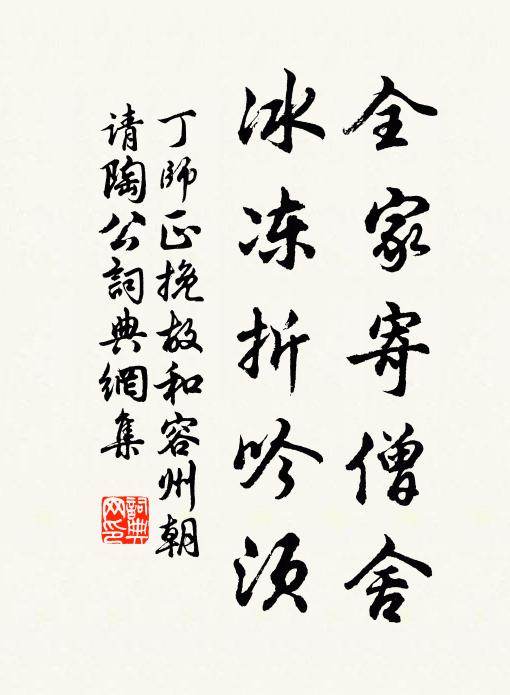 全家寄僧舍
冰冻折吟须
丁师正挽故和容州朝
请陶公詞典網集
詞典網印